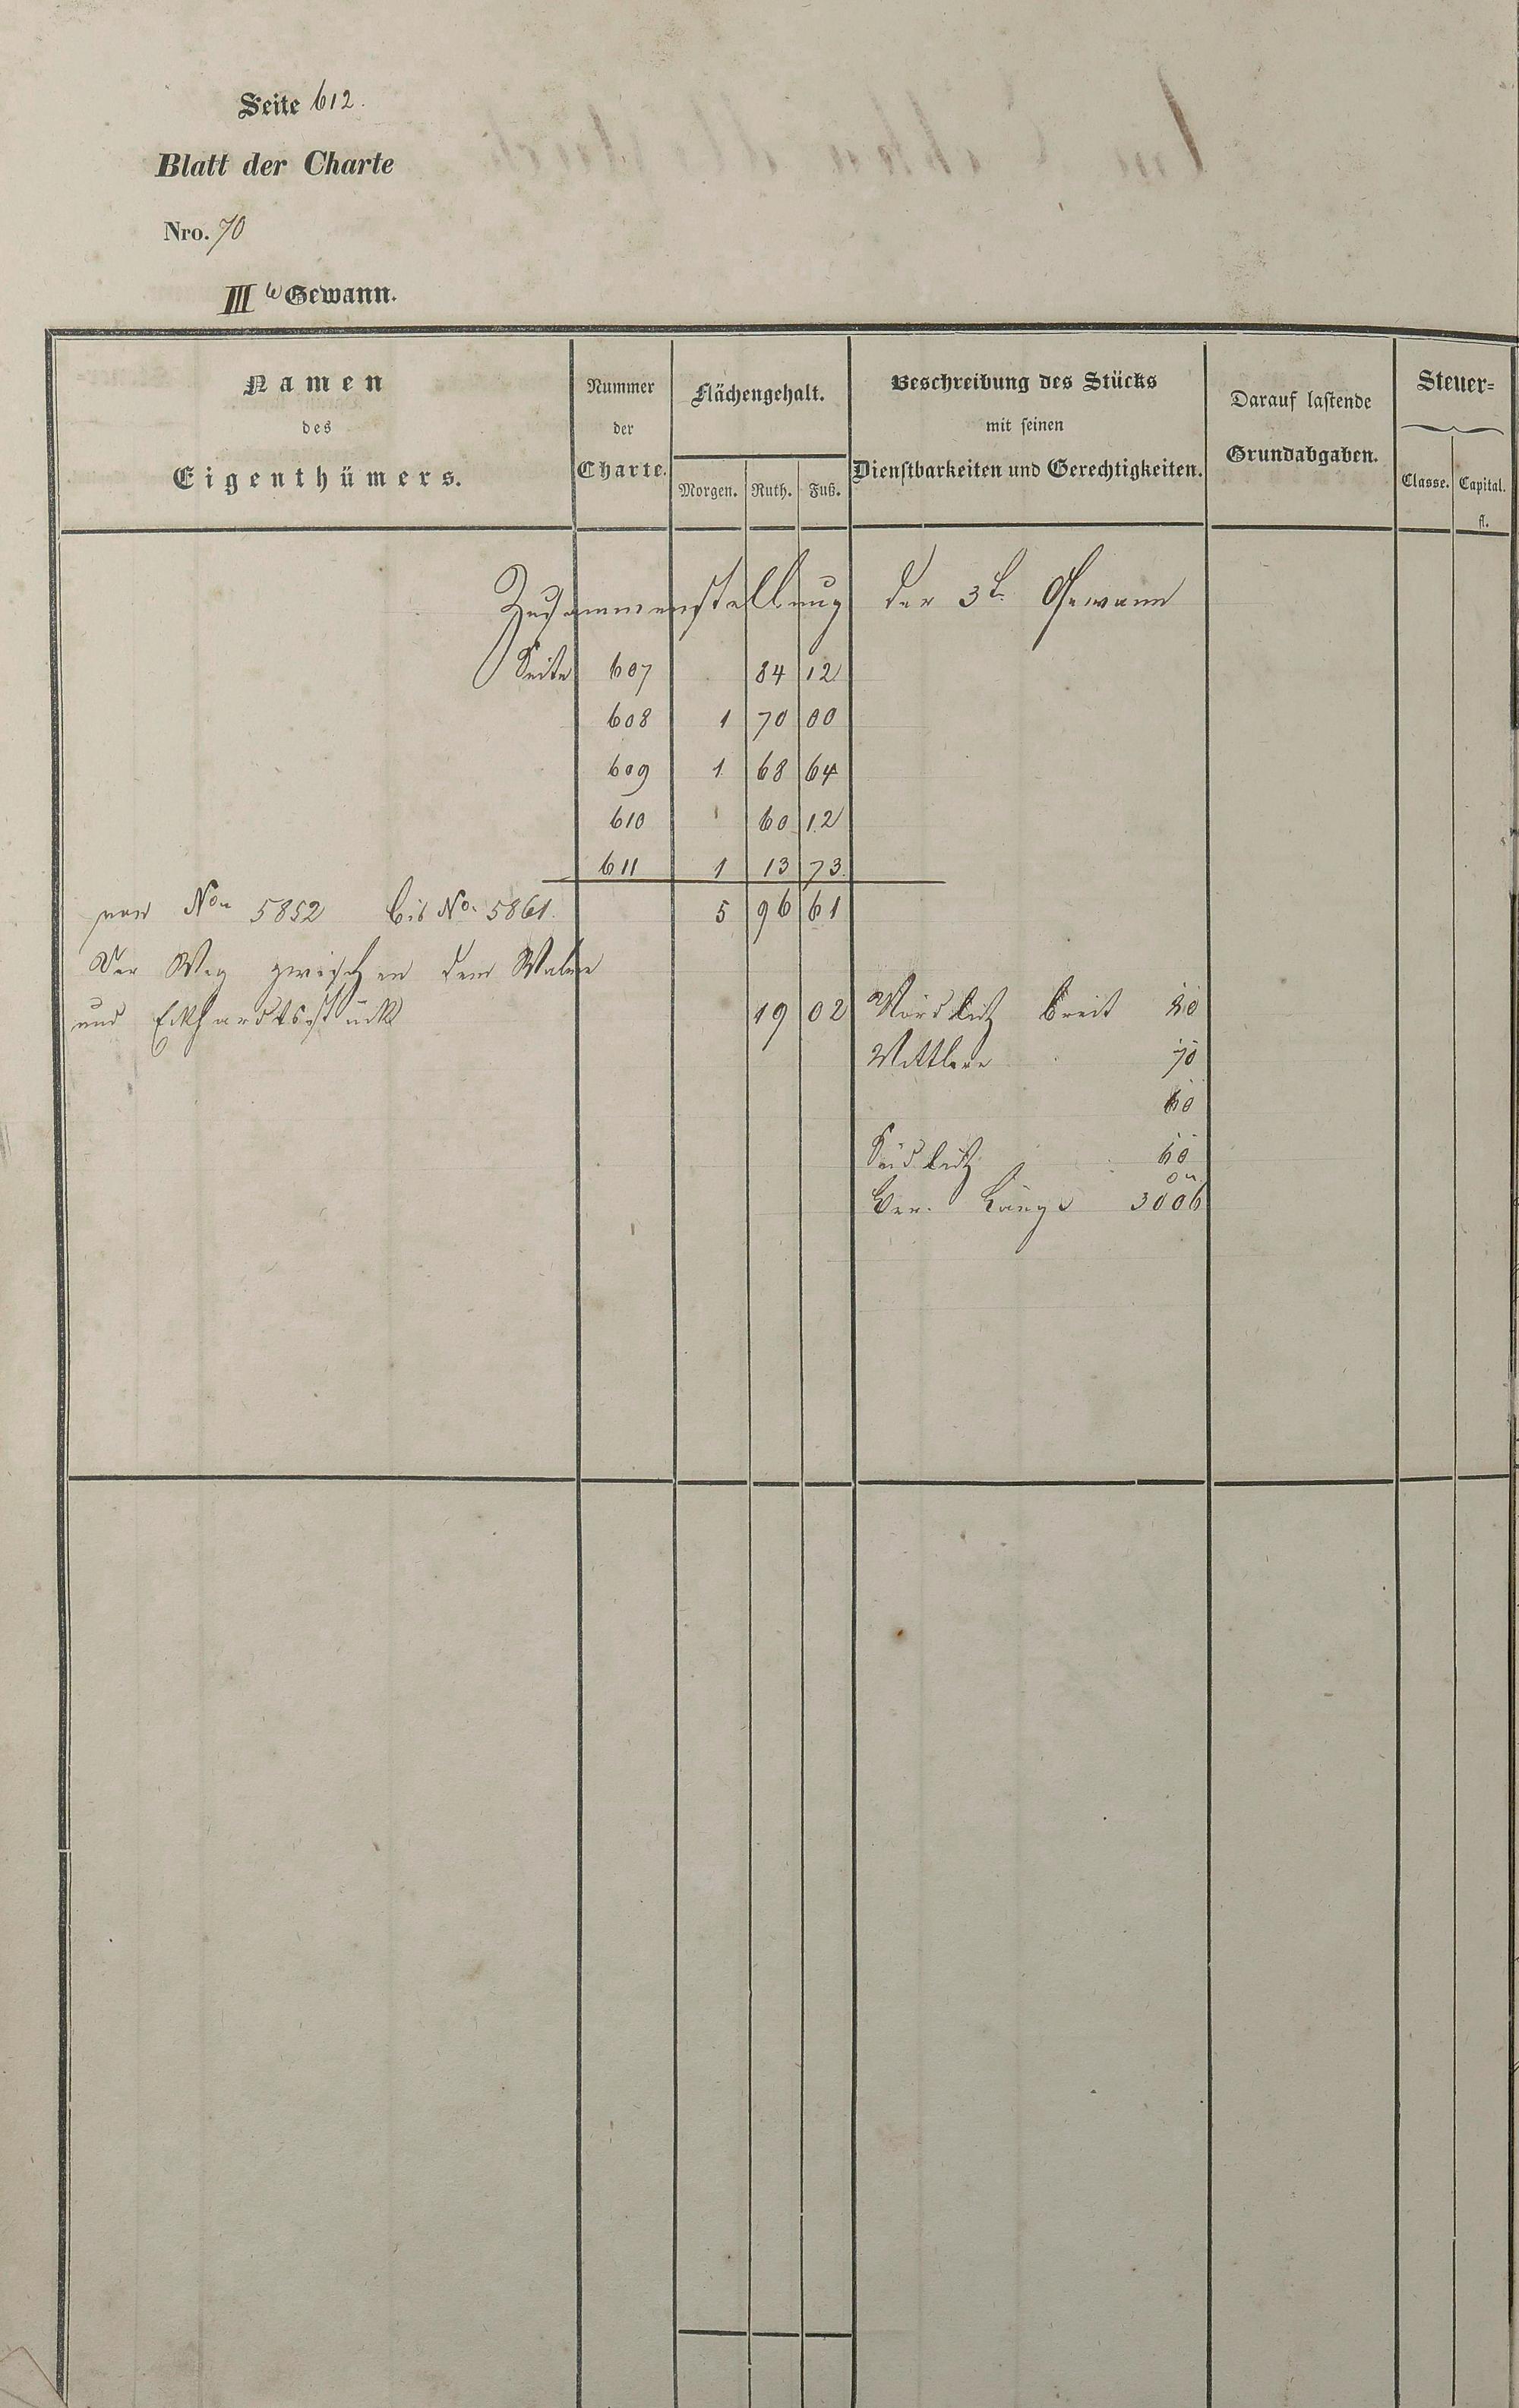 Seite 612.
Blatt der Charte
Nro. 70
III te Gewann.
Namen des Eigenthümers.
Nummer der Charte.
Flächengehalt.
Morgen. Ruth. Fuß.
Beschreibung des Stücks mit seinen Dienstbarkeiten und Gerechtigkeiten.
Darauf lastende Grundabgaben.
Steuer=
Classe. Capital.
fl.
Zusammenstellung der 3t. Gewann
Seite 607 84 12
608 1 70 00
609 1 68 64
610 60 12
611 1 13 73
von No. 5852 bis No. 5861. 5 96 61
Der Weg zwischen dem Walde
und Eckhardtsstück 19 02 Nördlich breit
Mittlere 70
60
Südlich 60
Ver. Länge 3006